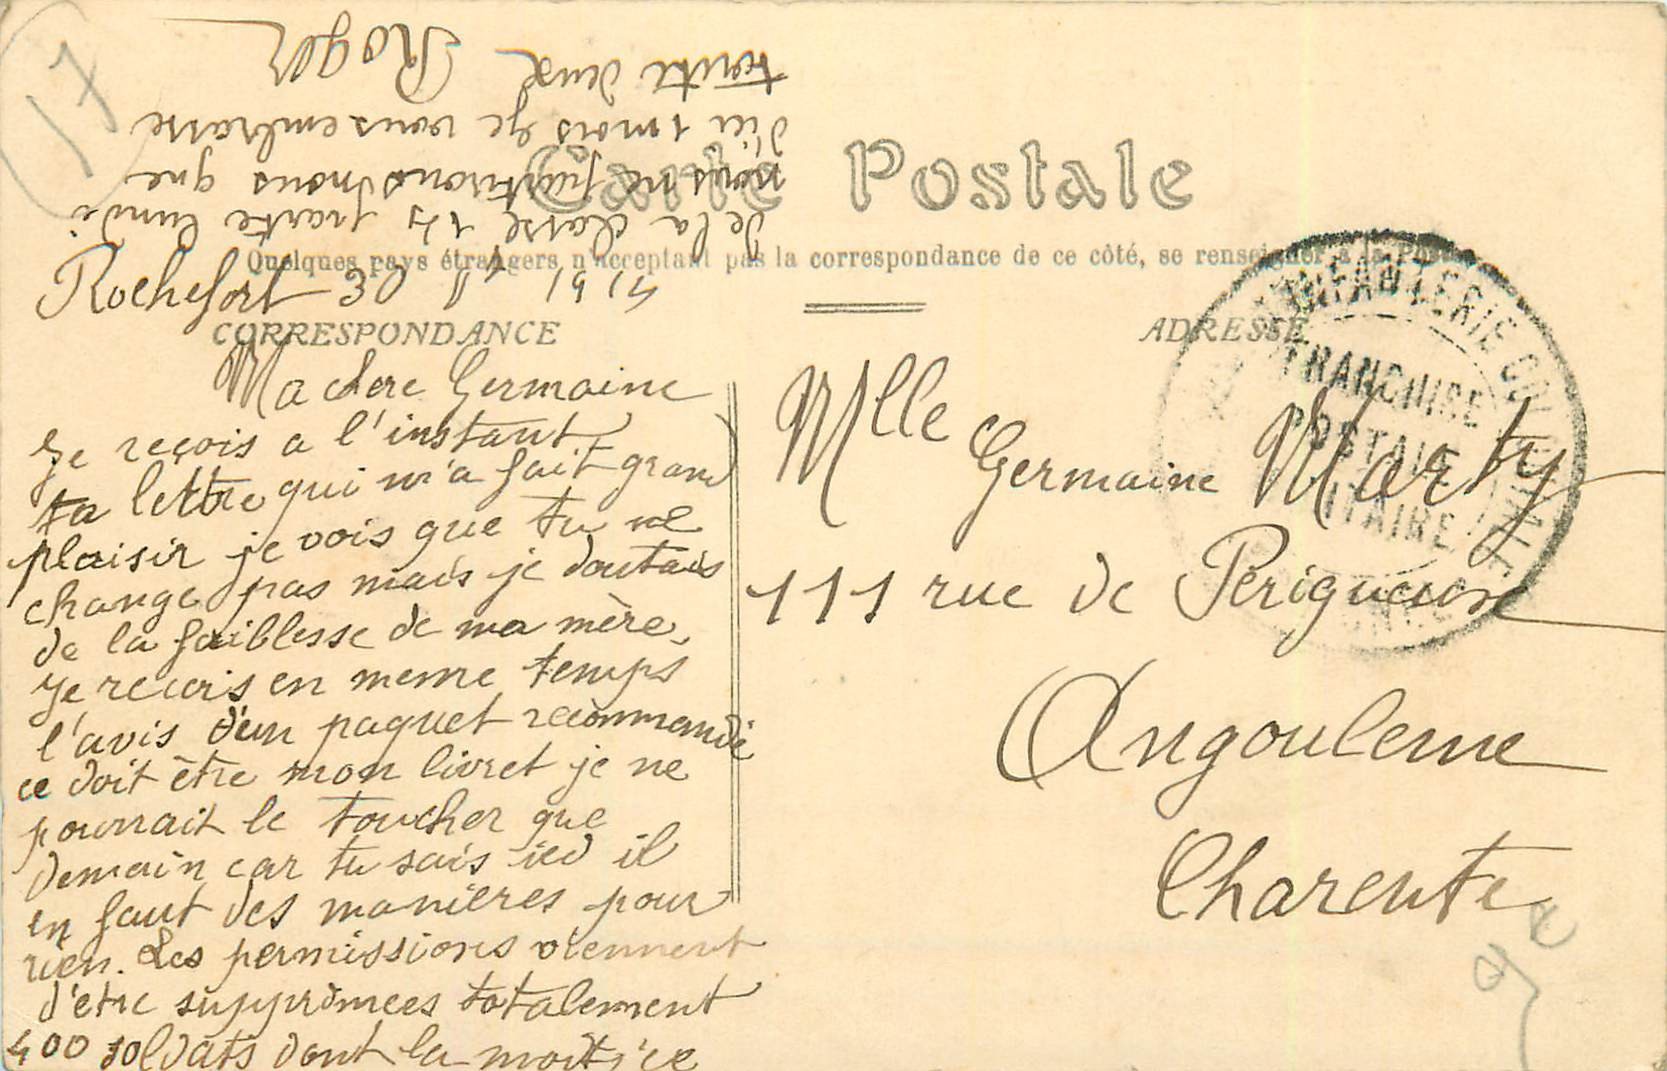 17
Carte Postale
Quelques pays étrangers n'acceptant pas la correspondance de ce côté, se renseigner à la Poste
CORRESPONDANCE
ADRESSE
Rochefort
Ma chere Germaine
Je reçois a l'instant
ta lettre qui m'a fait grand
plaisir je vois que tu ne
change pas mais je doutais
de la faiblesse de ma mère,
Je recois en meme temps
l'avis d'un paquet recommandé
ce doit être mon livret je ne
pourrait le toucher que
demain car tu sais ici il
en faut des manières pour
rien. Les permissions viennent
d'etre supprimees totalement
400 soldats dont la moitsie
de la classe 14 parte lundi
nous ne partirons nous que
d'ici 1 mois Je vous embrasse
toute deux
Roger
Mlle Germaine Marty
111 rue de Perigueux
Angouleme
Charente
INFANTERIE COLONIALE
FRANCHISE
POSTALE
MILITAIRE